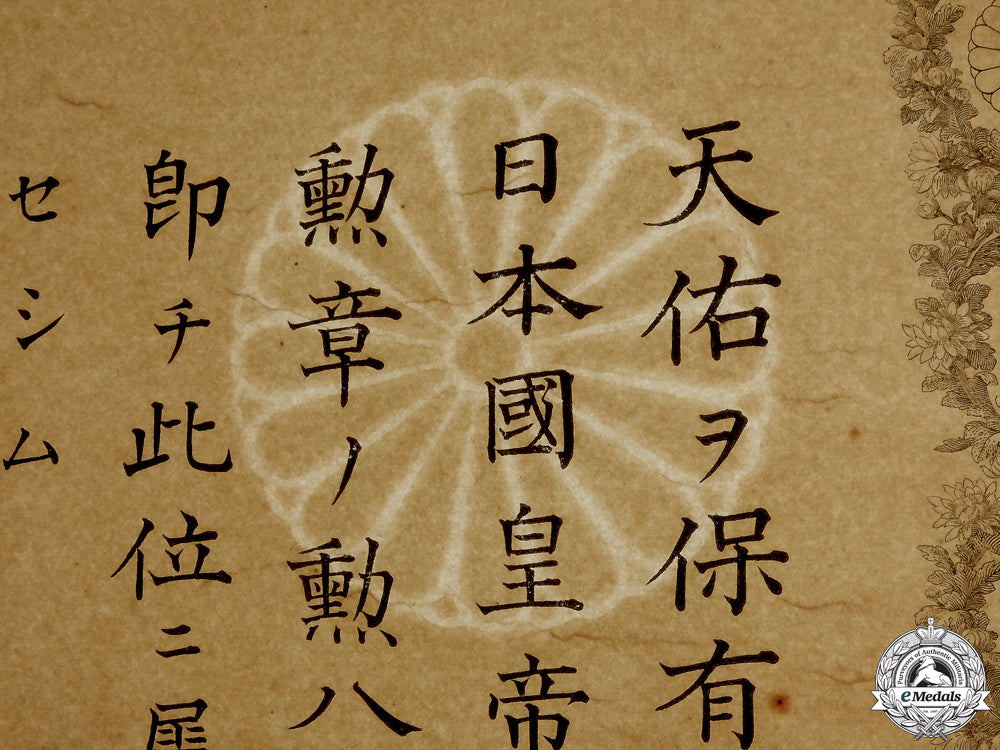 天佑ヲ保有
日本國皇帝
勲章ノ勲八
即チ此位ニ
セシム
Purveyors of Authentic Militaria
eMedals